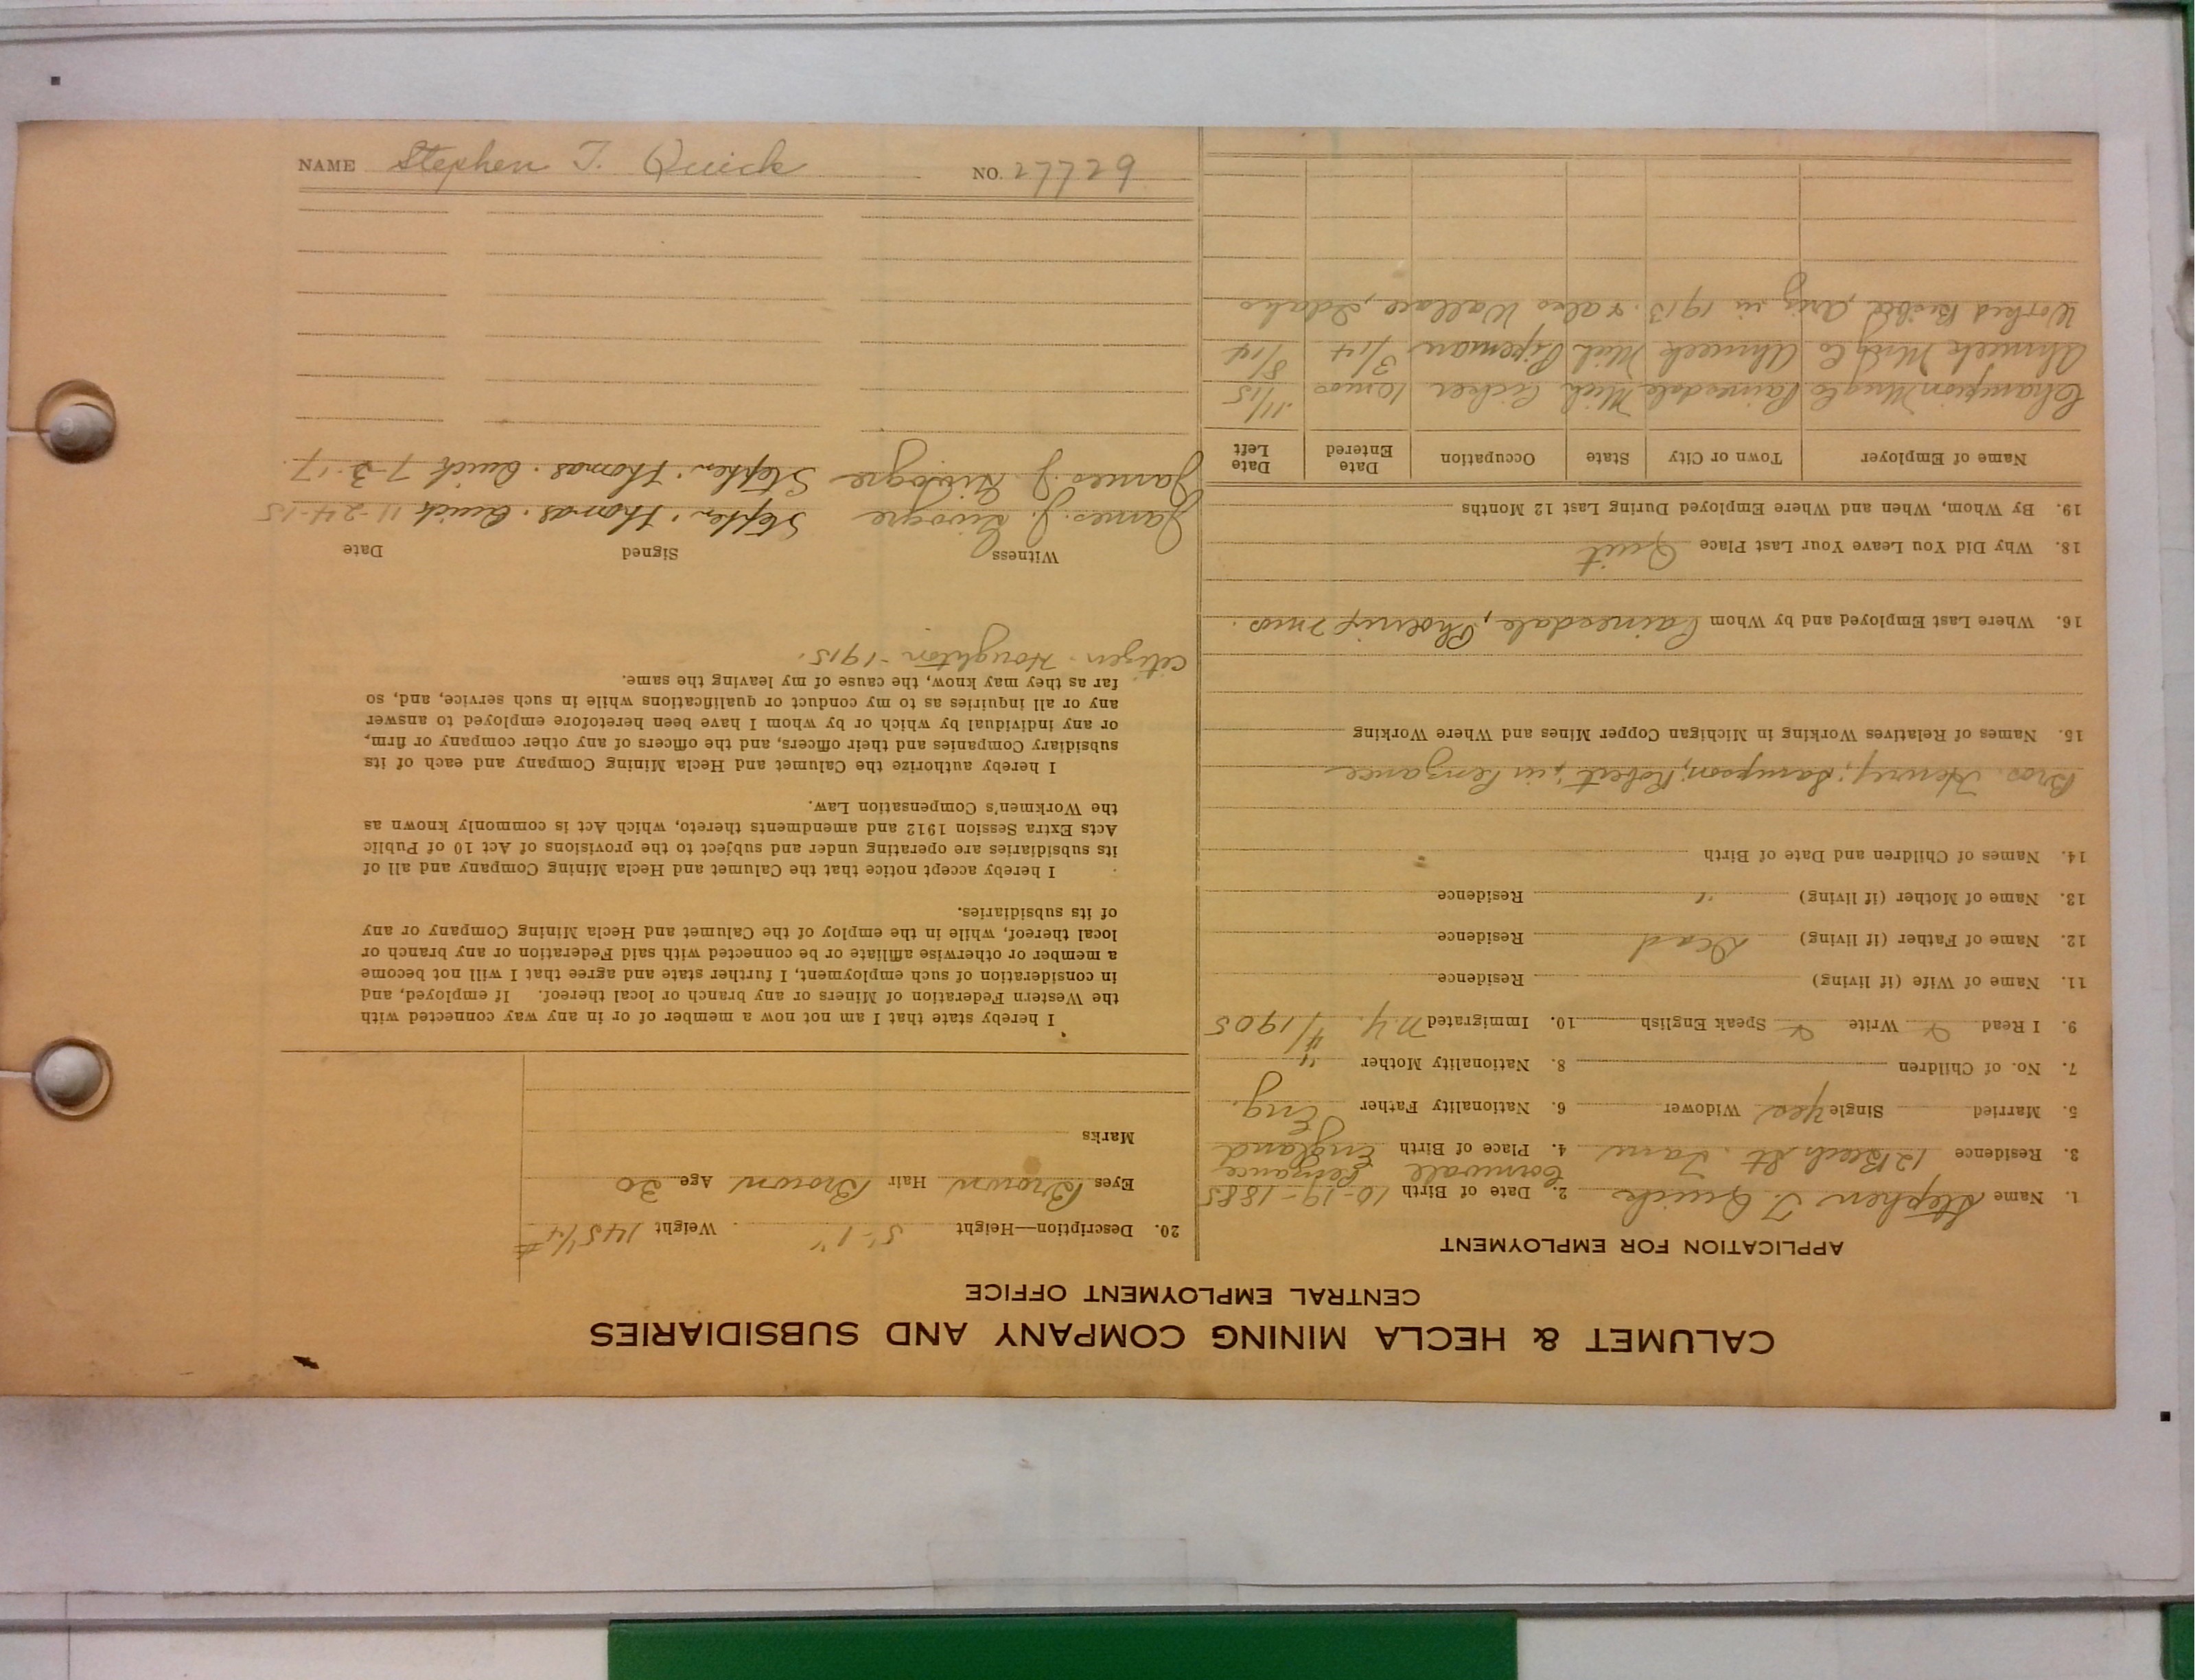 NAME Stephen T. Quick NO. 27729
CALUMET & HECLA MINING COMPANY AND SUBSIDIARIES
CENTRAL EMPLOYMENT OFFICE
APPLICATION FOR EMPLOYMENT
1. Name Stephen T. Quick 2. Date of Birth 10-19-1885
Cornwall Penzance
3. Residence 12 Beech St. 4. Place of Birth England
5. Married Single Yes Widower 6. Nationality Father Eng.
7. No. of Children 8. Nationality Mother "
9. I Read Write Speak English 10. Immigrated N.Y. 4/1905
11. Name of Wife (if living) Residence
12. Name of Father (if living) Dead Residence
13. Name of Mother (if living) " Residence
14. Names of Children and Date of Birth
Bros. Henry; Sampson; Robert; in Penzance
15. Names of Relatives Working in Michigan Copper Mines and Where Working
16. Where Last Employed and by Whom Painesdale,
18. Why Did You Leave Your Last Place Quit
19. By Whom, When and Where Employed During Last 12 Months
Name of Employer Town or City State Occupation Date Entered Date Left
Champion Mng Co Painesdale Mich 10 mos 11/15
Ahmeek Mng Co Ahmeek Mich Pipeman 3/14 8/14
Worked Bisbee, Ariz in 1913. & also Wallace, Idaho
20. Description—Height 5'-1" Weight 145 1/4 #
Eyes Brown Hair Brown Age 30
Marks
I hereby state that I am not now a member of or in any way connected with
the Western Federation of Miners or any branch or local thereof. If employed, and
in consideration of such employment, I further state and agree that I will not become
a member or otherwise affiliate or be connected with said Federation or any branch or
local thereof, while in the employ of the Calumet and Hecla Mining Company or any
of its subsidiaries.
I hereby accept notice that the Calumet and Hecla Mining Company and all of
its subsidiaries are operating under and subject to the provisions of Act 10 of Public
Acts Extra Session 1912 and amendments thereto, which Act is commonly known as
the Workmen's Compensation Law.
I hereby authorize the Calumet and Hecla Mining Company and each of its
subsidiary Companies and their officers, and the officers of any other company or firm,
or any individual by which or by whom I have been heretofore employed to answer
any or all inquiries as to my conduct or qualifications while in such service, and, so
far as they may know, the cause of my leaving the same.
Citizen - Houghton - 1915.
Witness Signed Date
James. J. Stephen. Thomas. Quick 11-24-15
James J. Stephen. Thomas. Quick 7-3-17.